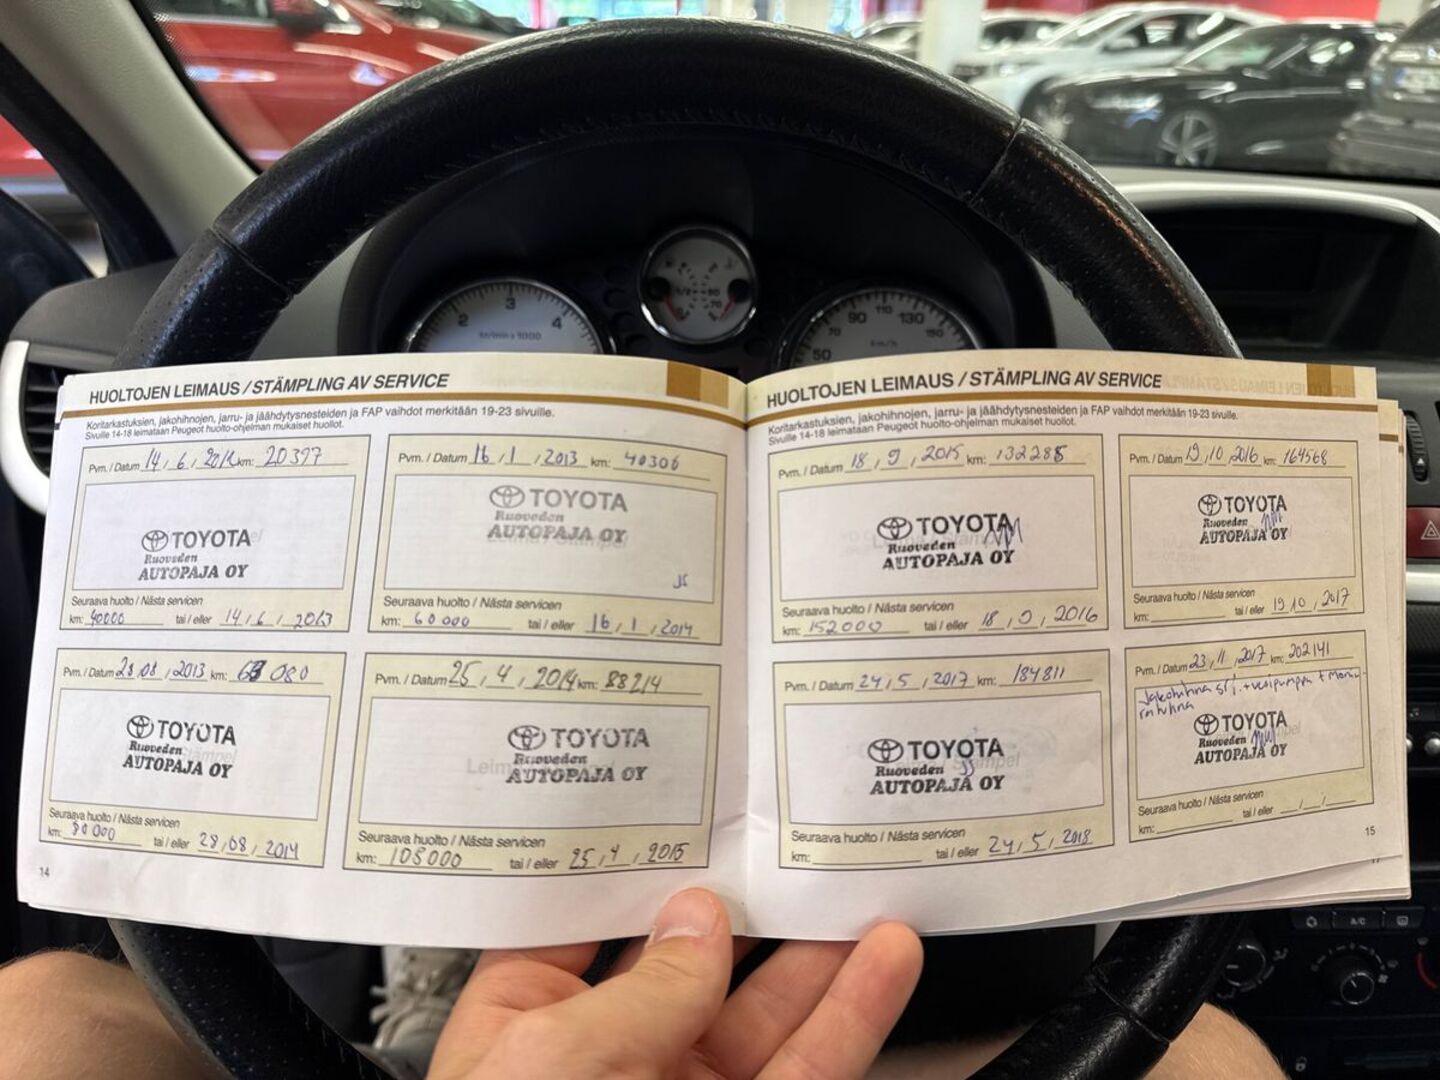 HUOLTOJEN LEIMAUS / STÄMPLING AV SERVICE
Koritarkastuksien, jakohihnojen, jarru- ja jäähdytysnesteiden ja FAP vaihdot merkitään 19-23 sivuille.
Sivuille 14-18 leimataan Peugeot huolto-ohjelman mukaiset huollot.
Pvm. / Datum 14 , 6 , 2012 km: 20397
TOYOTA
Ruoveden
AUTOPAJA OY
Seuraava huolto / Nästa servicen
km: 40000 tai / eller 14 , 6 , 2013
Pvm. / Datum 16 , 1 , 2013 km: 40306
TOYOTA
Ruoveden
AUTOPAJA OY
JS
Seuraava huolto / Nästa servicen
km: 60 000 tai / eller 16 , 1 , 2014
Pvm. / Datum 28 , 08 , 2013 km: 080
TOYOTA
Ruoveden
AUTOPAJA OY
Seuraava huolto / Nästa servicen
km: 80 000 tai / eller 28 , 08 , 2014
Pvm. / Datum 25 , 4 , 2014 km: 88214
TOYOTA
Ruoveden
AUTOPAJA OY
Seuraava huolto / Nästa servicen
km: 108000 tai / eller 25 , 4 , 2015
14
HUOLTOJEN LEIMAUS / STÄMPLING AV SERVICE
Koritarkastuksien, jakohihnojen, jarru- ja jäähdytysnesteiden ja FAP vaihdot merkitään 19-23 sivuille.
Sivuille 14-18 leimataan Peugeot huolto-ohjelman mukaiset huollot.
Pvm. / Datum 18 , 9 , 2015 km: 132288
TOYOTA
Ruoveden
AUTOPAJA OY
Seuraava huolto / Nästa servicen
km: 152000 tai / eller 18 , 9 , 2016
Pvm. / Datum 19 , 10 , 2016 km: 164568
TOYOTA
Ruoveden
AUTOPAJA OY
Seuraava huolto / Nästa servicen
km: tai / eller 19 10 , 2017
Pvm. / Datum 24 , 5 , 2017 km: 184811
TOYOTA
Ruoveden
AUTOPAJA OY
JS
Seuraava huolto / Nästa servicen
km: tai / eller 24 , 5 , 2018
Pvm. / Datum 23 , 11 , 2017 km: 202141
Jakohihna srj. + vesipumppu + moniurahihna
TOYOTA
Ruoveden
AUTOPAJA OY
Seuraava huolto / Nästa servicen
km: tai / eller
15
2
3
4
tr/min x 1000
50
70
90
110
130
150
km/h
A/C